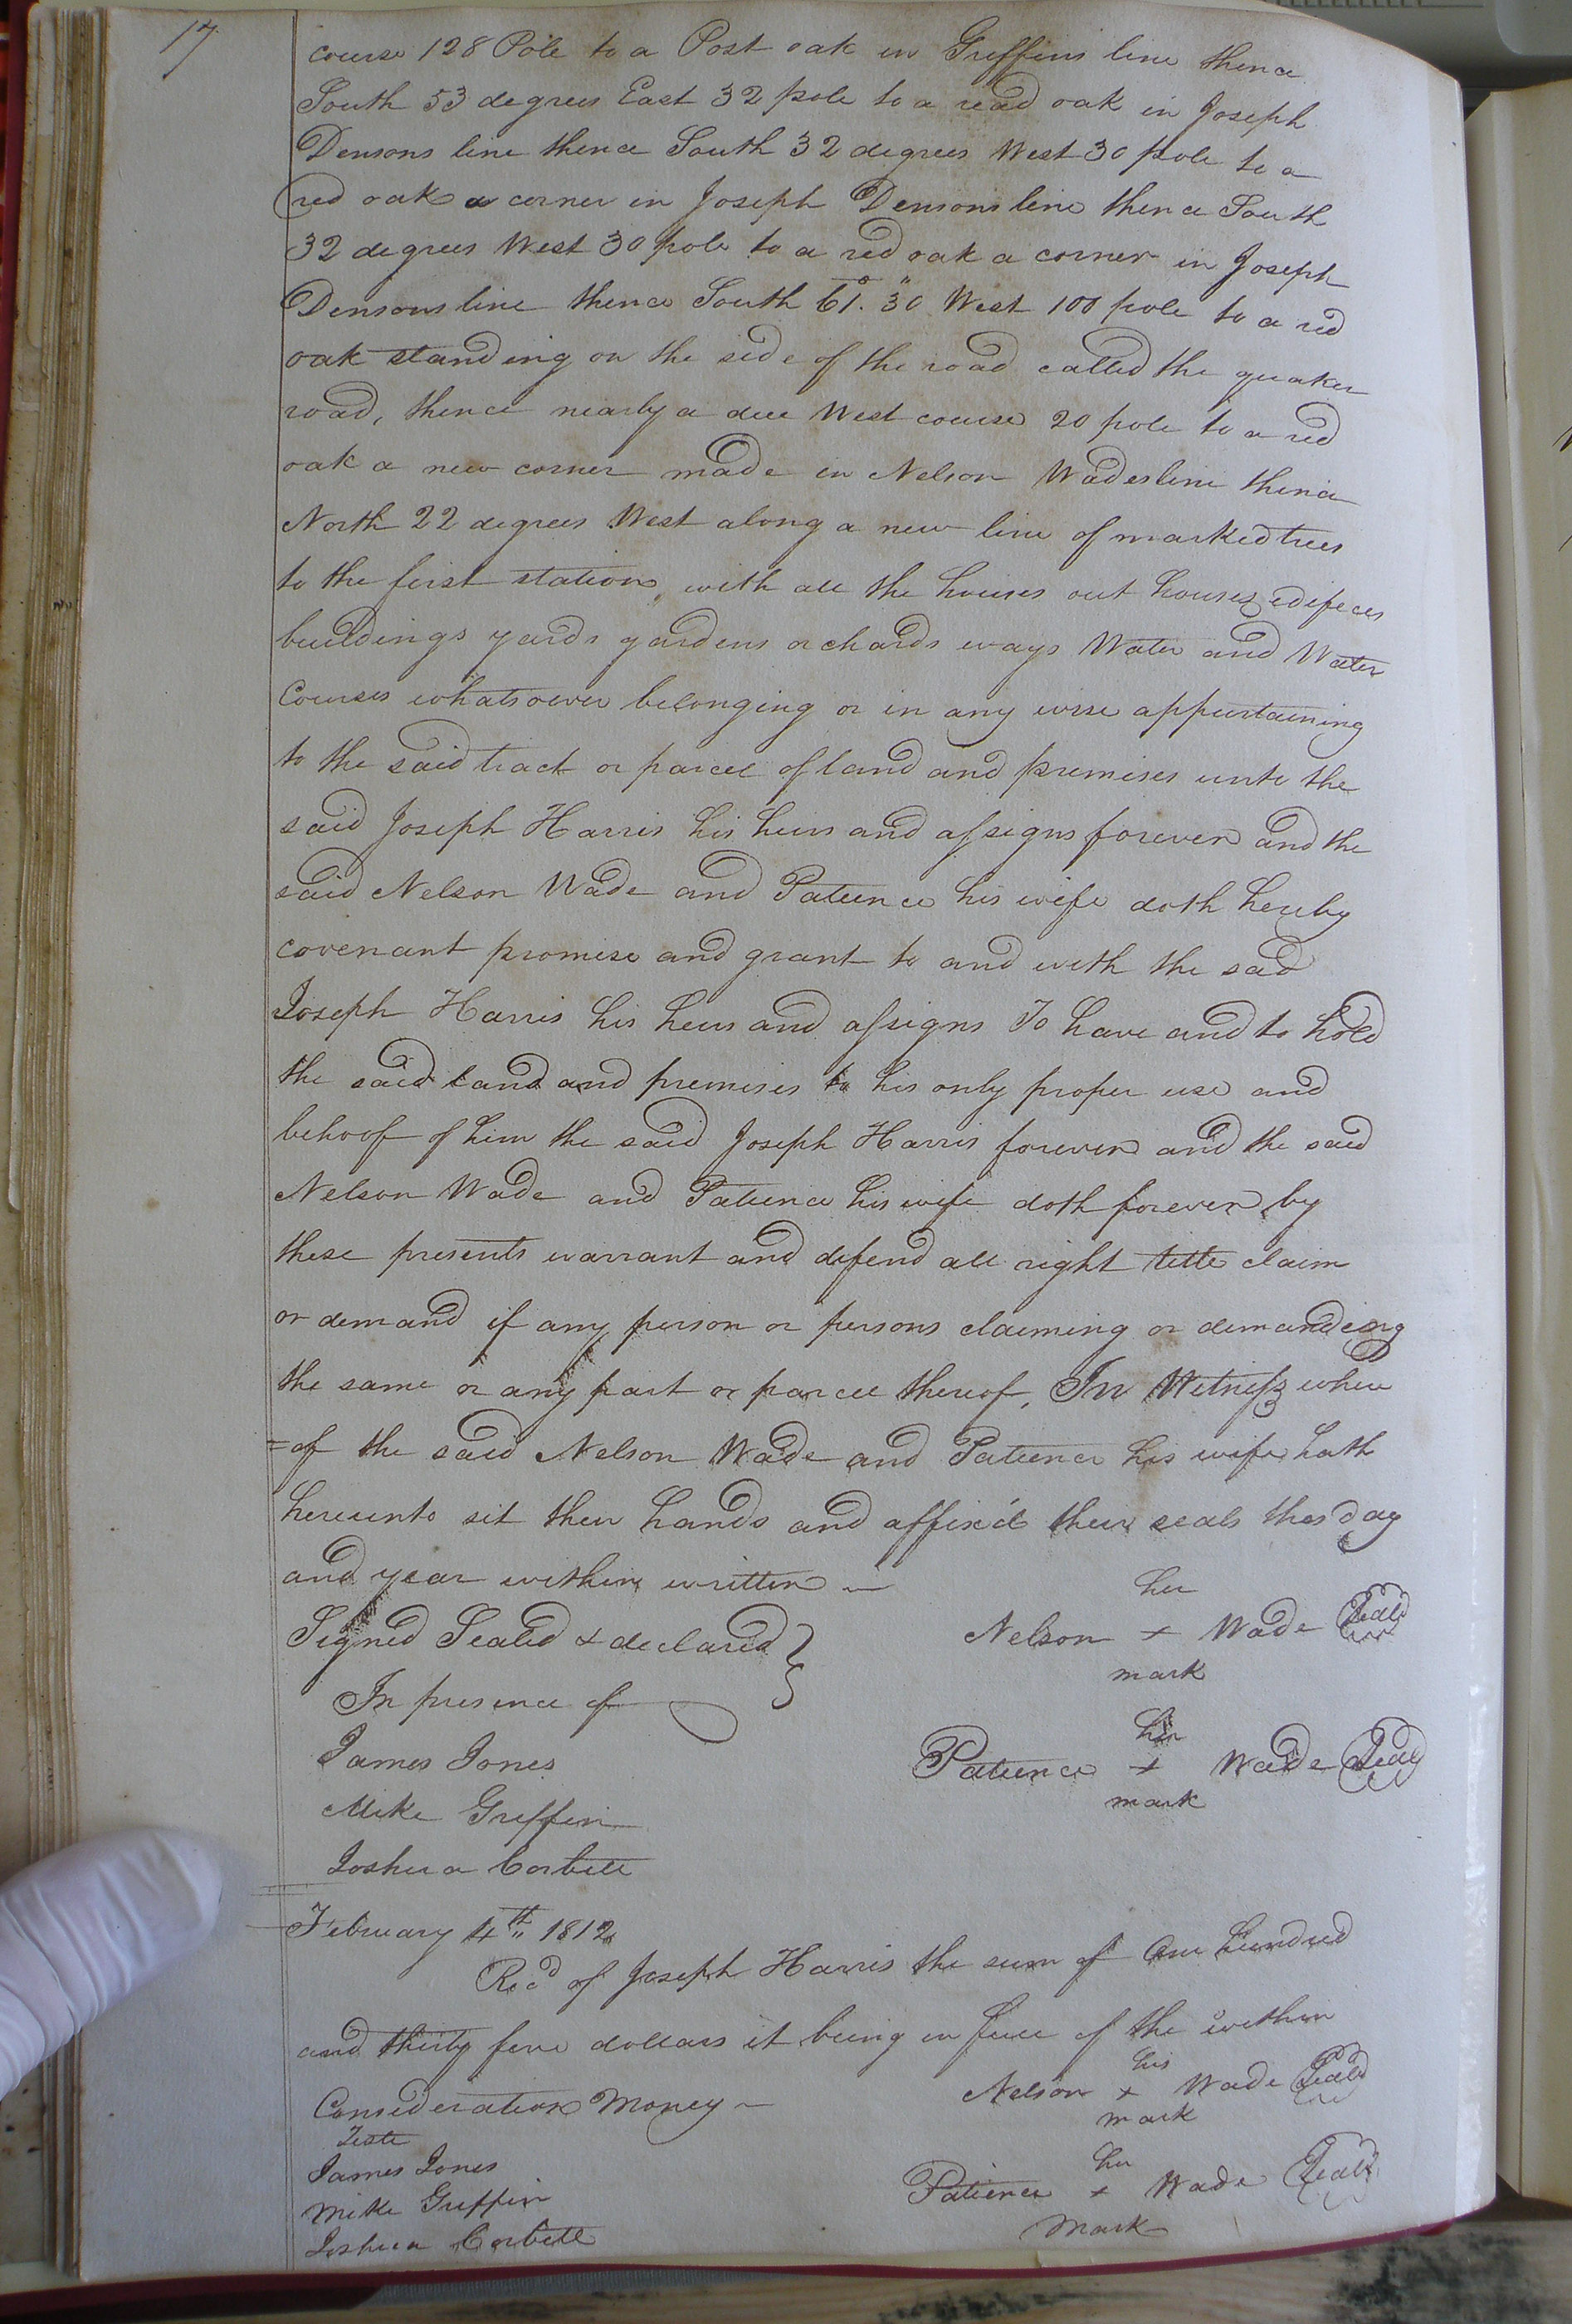 17
course 128 Pole to a Post oak in Griffins line thence
South 53 degrees East 32 pole to a read oak in Joseph
Densons line thence South 32 degrees West 30 pole to a
red oak a corner in Joseph Densons line thence South
32 degrees West 30 pole to a red oak a corner in Joseph
Densons line thence South 61°. 30" West 100 pole to a red
oak standing on the side of the road called the quaker
road, thence nearly a due West course 20 pole to a red
oak a new corner made in Nelson Wades line thence
North 22 degrees West along a new line of marked trees
to the first station, with all the houses out houses edifeces
buildings yards gardens orchards ways Water and Water
Courses whatsoever belonging or in any wise appurtaining
to the said tract or parcel of land and premises unto the
said Joseph Harris his heirs and assigns forever and the
said Nelson Wade and Patience his wife doth hereby
covenant promise and grant to and with the sad
Joseph Harris his heirs and assigns To have and to hold
the said land and premises to his only proper use and
behoof of him the said Joseph Harris forever and the said
Nelson Wade and Patience his wife doth forever by
these presents warrant and defend all right title claim
or demand if any person or persons claiming or demanding
the same or any part or parcel thereof, In Witness where
=of the said Nelson Wade and Patience his wife hath
hereunto set their hands and affixed their seals the day
and year within written
Signed Sealed & declared
In presence of
his
Nelson + Wade Seal
mark
James Jones
Mike Griffin
Joshua Corbell
her
Patience + Wade Seal
mark
February 4th 1812
Recd of Joseph Harris the sum of One hundred
and thirty five dollars it being in full of the within
Consideration Money
his
Nelson + Wade Seal
mark
Teste
James Jones
Mike Griffin
Joshua Corbell
her
Patience + Wade Seal
Mark